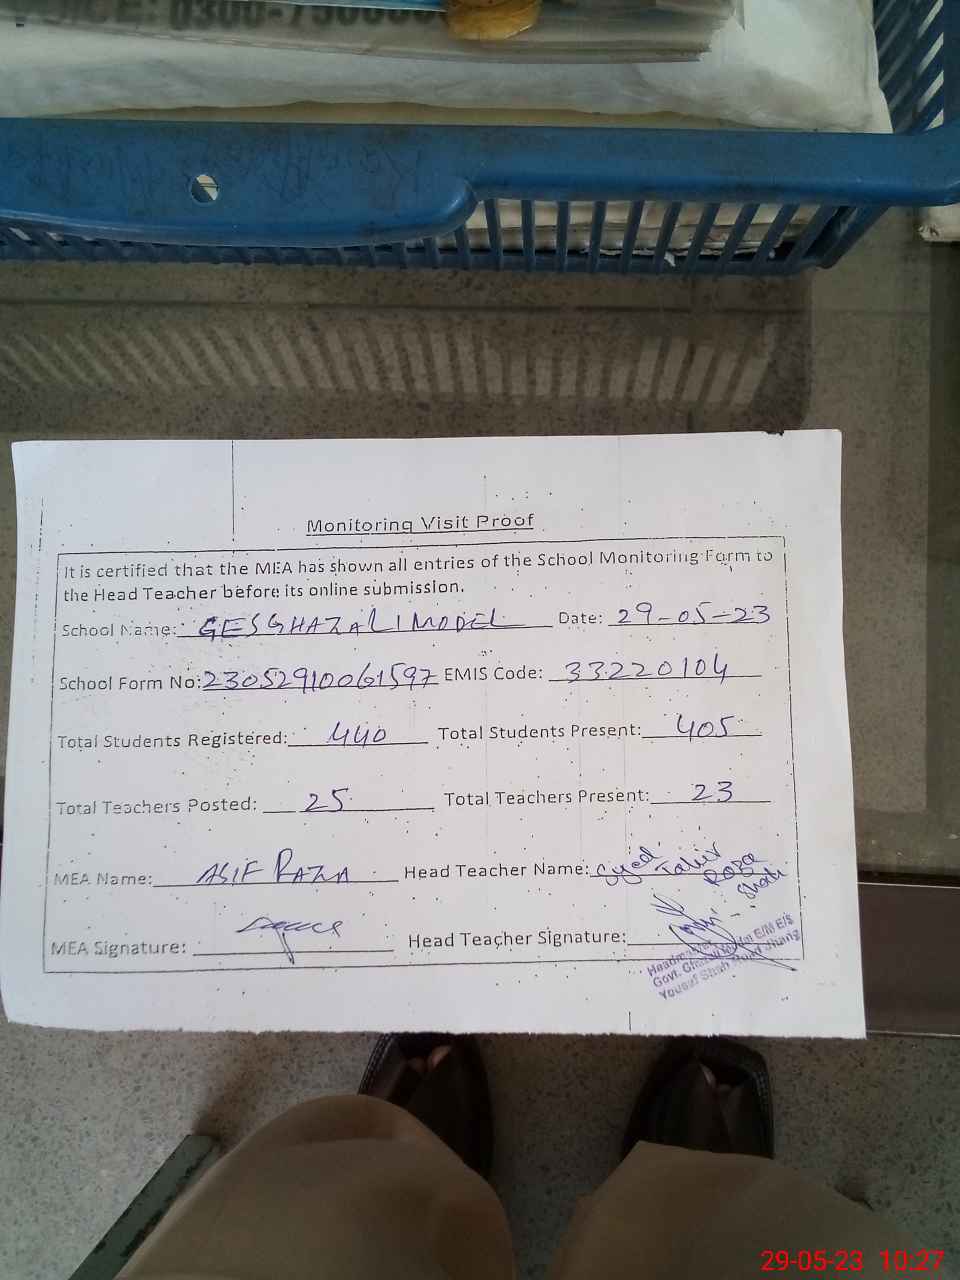 Monitoring Visit Proof
It is certified that the MEA has shown all entries of the School Monitoring Form to
the Head Teacher before its online submission.
School Name: GES GHAZALI MODEL Date: 29-05-23
School Form No: 23052910061597 EMIS Code: 33220104
Total Students Registered: 440 Total Students Present: 405
Total Teachers Posted: 25 Total Teachers Present: 23
MEA Name: ASIF RAZA Head Teacher Name: Syed Tahir Raza Shah
MEA Signature: Head Teacher Signature:
Headmaster
Govt. E/S
Yousaf Shah Road Jhang
29-05-23 10:27